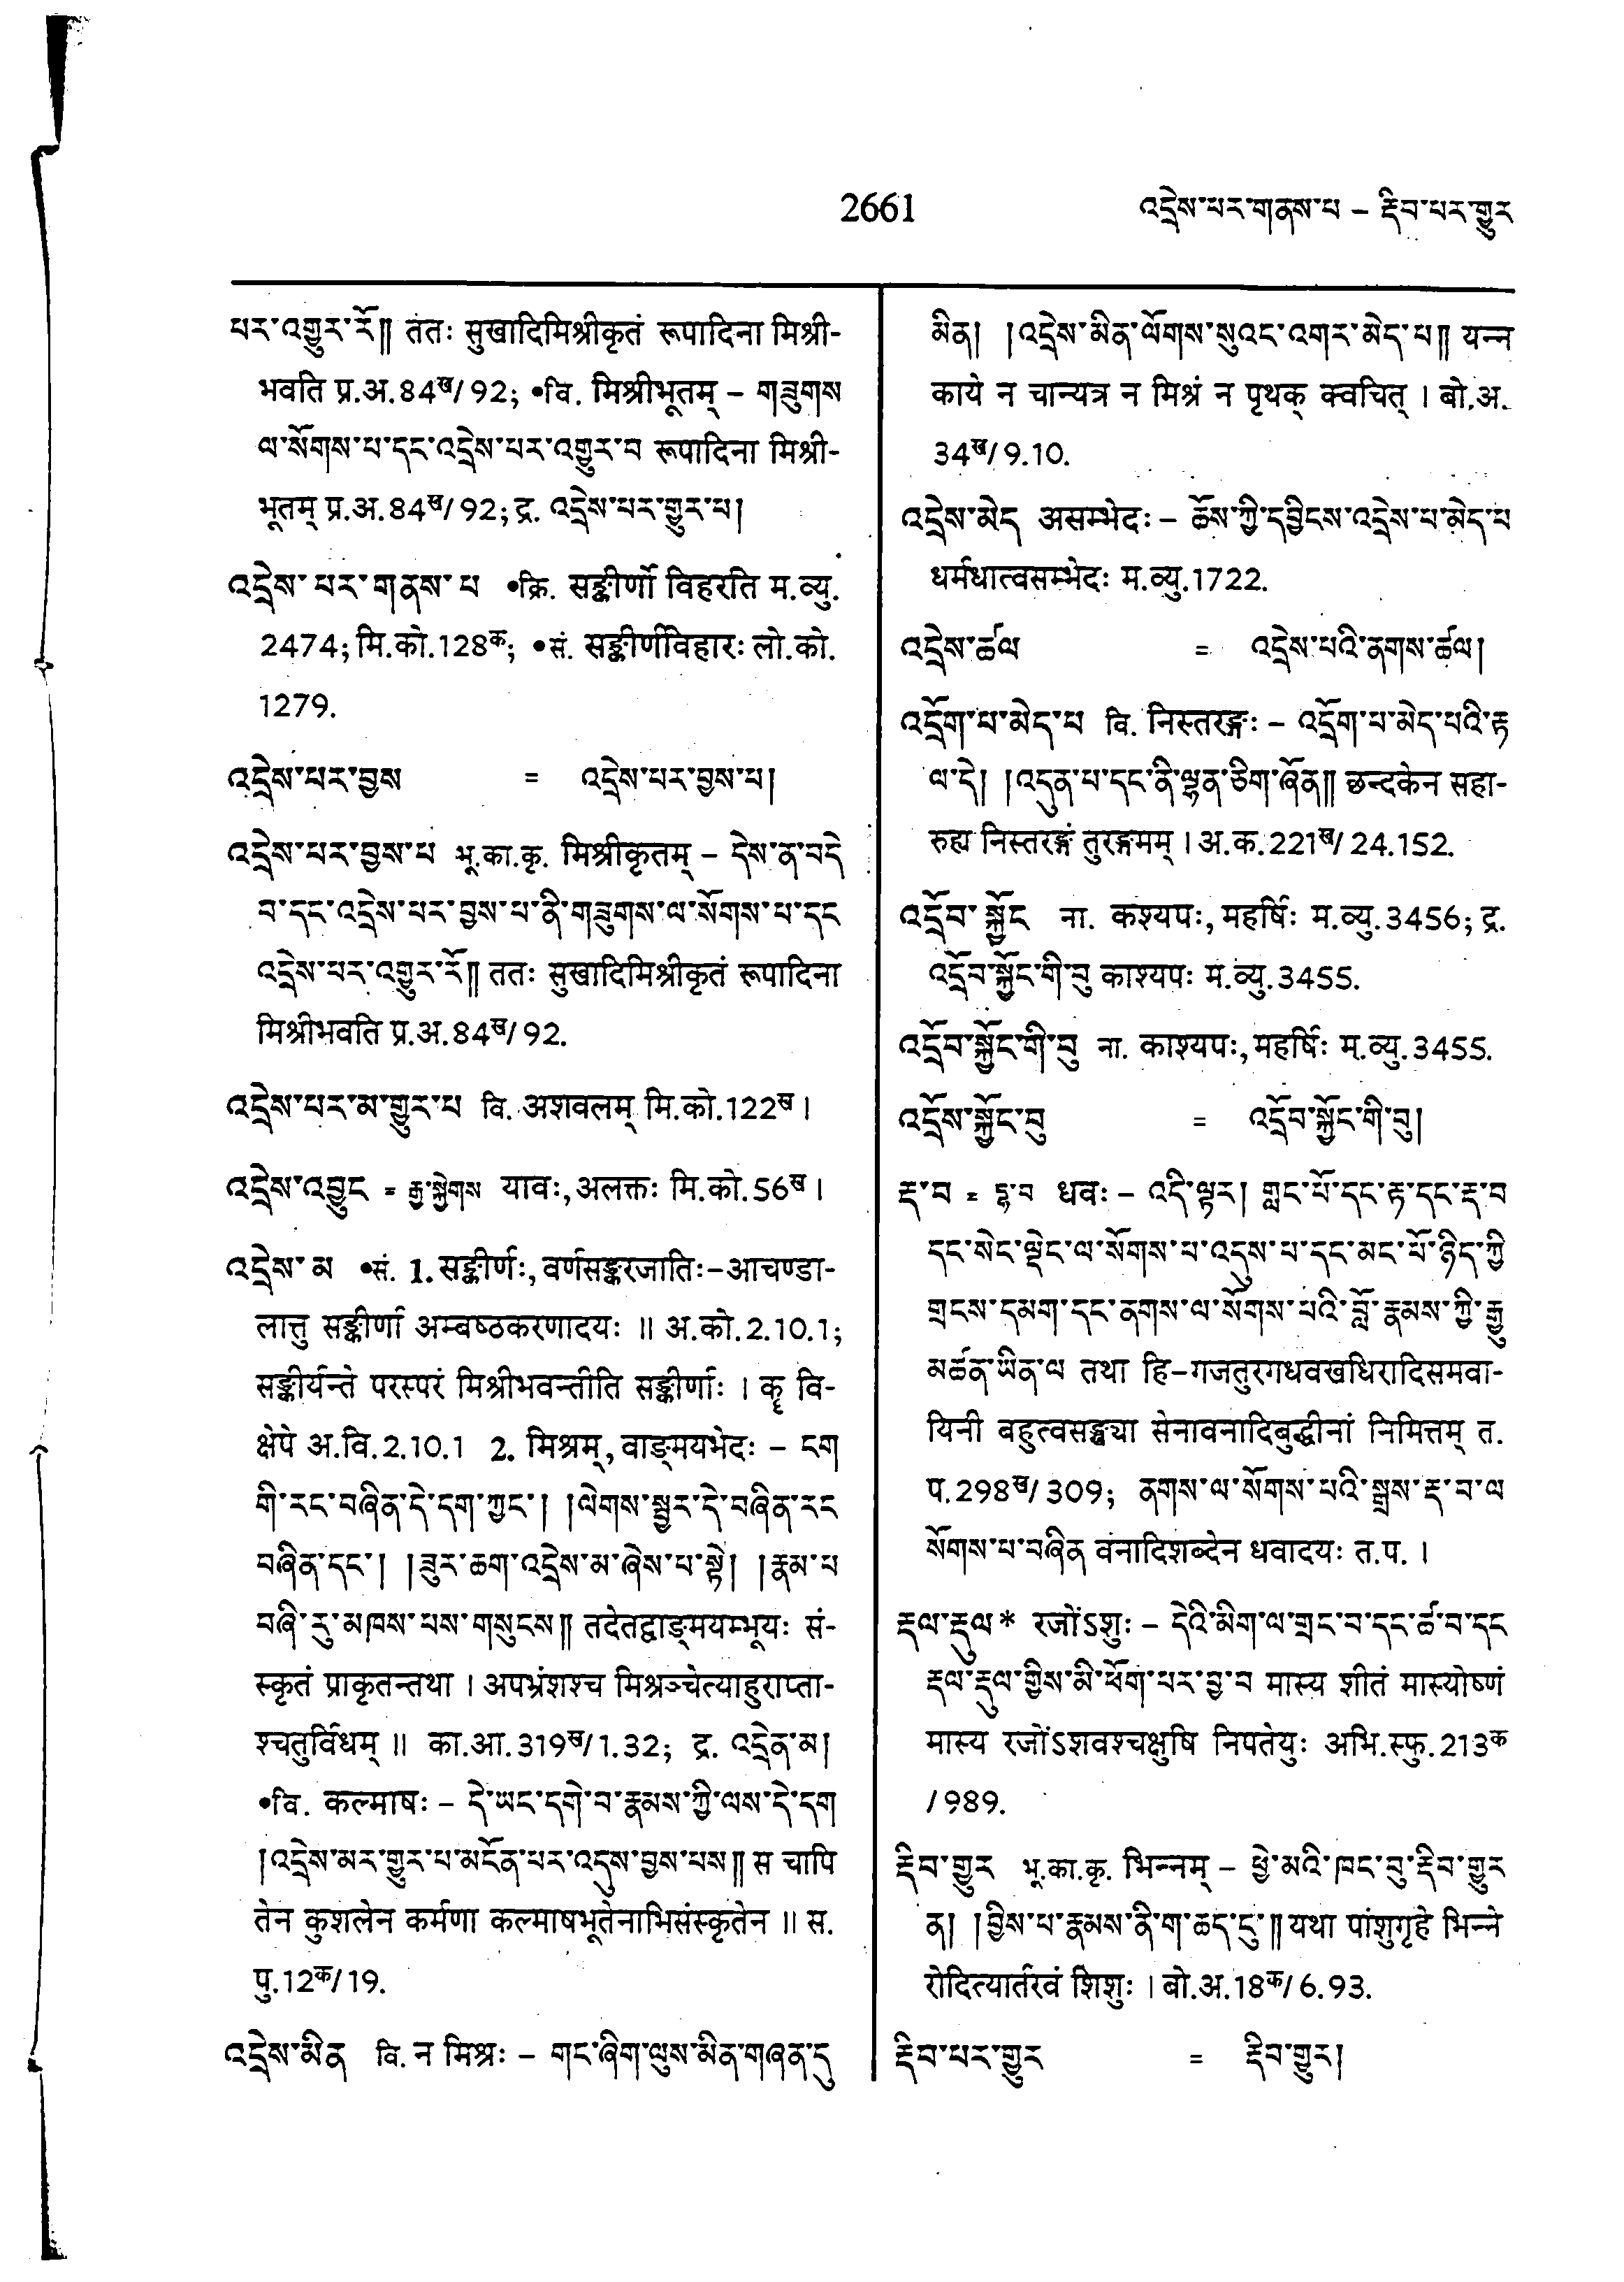 2661
འདྲེས་པར་གནས་པ – རྡིབ་པར་གྱུར
པར་འགྱུར་རོ།། ततः सुखादिमिश्रीकृतं रूपादिना मिश्री-
भवति प्र.अ.84ख/92; •वि. मिश्रीभूतम् – གཟུགས
ལ་སོགས་པ་དང་འདྲེས་པར་འགྱུར་བ रूपादिना मिश्री-
भूतम् प्र.अ.84ख/92; द्र. འདྲེས་པར་གྱུར་པ།
འདྲེས་པར་གནས་པ •क्रि. सङ्कीर्णो विहरति म.व्यु.
2474; मि.को.128क; •सं. सङ्कीर्णविहारः लो.को.
1279.
འདྲེས་པར་བྱས = འདྲེས་པར་བྱས་པ།
འདྲེས་པར་བྱས་པ भू.का.कृ. मिश्रीकृतम् – དེས་ན་བདེ
བ་དང་འདྲེས་པར་བྱས་པ་ནི་གཟུགས་ལ་སོགས་པ་དང
འདྲེས་པར་འགྱུར་རོ།། ततः सुखादिमिश्रीकृतं रूपादिना
मिश्रीभवति प्र.अ.84ख/92.
འདྲེས་པར་མ་གྱུར་པ वि. अशवलम् मि.को.122ख ।
འདྲེས་འབྱུང = རྒྱ་སྐྱེགས यावः, अलक्तः मि.को.56ख ।
འདྲེས་མ •सं. 1. सङ्कीर्णः, वर्णसङ्करजातिः–आचण्डा-
लात्तु सङ्कीर्णा अम्बष्ठकरणादयः ॥ अ.को.2.10.1;
सङ्कीर्यन्ते परस्परं मिश्रीभवन्तीति सङ्कीर्णाः । कॄ वि-
क्षेपे अ.वि.2.10.1 2. मिश्रम्, वाङ्मयभेदः – ངག
གི་རང་བཞིན་དེ་དག་ཀྱང་། །ལེགས་སྦྱར་དེ་བཞིན་རང
བཞིན་དང་། །ཟུར་ཆག་འདྲེས་མ་ཞེས་པ་སྟེ། །རྣམ་པ
བཞི་རུ་མཁས་པས་གསུངས།། तदेतद्वाङ्मयम्भूयः सं-
स्कृतं प्राकृतन्तथा । अपभ्रंशश्च मिश्रञ्चेत्याहुराप्ता-
श्चतुर्विधम् ॥ का.आ.319ख/1.32; द्र. འདྲེན་མ།
•वि. कल्माषः – དེ་ཡང་དགེ་བ་རྣམས་ཀྱི་ལས་དེ་དག
།འདྲེས་མར་གྱུར་པ་མངོན་པར་འདུས་བྱས་པས།། स चापि
तेन कुशलेन कर्मणा कल्माषभूतेनाभिसंस्कृतेन ॥ स.
पु.12क/19.
འདྲེས་མིན वि. न मिश्रः – གང་ཞིག་ལུས་མིན་གཞན་དུ
མིན། །འདྲེས་མིན་ལོགས་སུའང་འགར་མེད་པ།། यन्न
काये न चान्यत्र न मिश्रं न पृथक् क्वचित् । बो.अ.
34ख/9.10.
འདྲེས་མེད असम्भेदः – ཆོས་ཀྱི་དབྱིངས་འདྲེས་པ་མེད་པ
धर्मधात्वसम्भेदः म.व्यु.1722.
འདྲེས་ཚལ = འདྲེས་པའི་ནགས་ཚལ།
འདྲོག་པ་མེད་པ वि. निस्तरङ्गः – འདྲོག་པ་མེད་པའི་རྟ
ལ་དེ། །འདུན་པ་དང་ནི་ལྷན་ཅིག་ཞོན།། छन्दकेन सहा-
रुह्य निस्तरङ्गं तुरङ्गमम् । अ.क.221ख/24.152.
འདྲོབ་སྐྱོང ना. कश्यपः, महर्षिः म.व्यु.3456; द्र.
འདྲོབ་སྐྱོང་གི་བུ काश्यपः म.व्यु.3455.
འདྲོབ་སྐྱོང་གི་བུ ना. काश्यपः, महर्षिः म.व्यु.3455.
འདྲོས་སྐྱོང་བུ = འདྲོབ་སྐྱོང་གི་བུ།
རྡ་བ = དྷ་བ धवः – འདི་ལྟར། གླང་པོ་དང་རྟ་དང་རྡ་བ
དང་སེང་ལྡེང་ལ་སོགས་པ་འདུས་པ་དང་མང་པོ་ཉིད་ཀྱི
གྲངས་དམག་དང་ནགས་ལ་སོགས་པའི་བློ་རྣམས་ཀྱི་རྒྱུ
མཚན་ཡིན་ལ तथा हि–गजतुरगधवखधिरादिसमवा-
यिनी बहुत्वसङ्ख्या सेनावनादिबुद्धीनां निमित्तम् त.
प.298ख/309; ནགས་ལ་སོགས་པའི་སྒྲས་རྡ་བ་ལ
སོགས་པ་བཞིན वनादिशब्देन धवादयः त.प. ।
རྡལ་རྡུལ* रजोंऽशुः – དེའི་མིག་ལ་གྲང་བ་དང་ཚ་བ་དང
རྡལ་རྡུལ་གྱིས་མི་ཕོག་པར་བྱ་བ मास्य शीतं मास्योष्णं
मास्य रजोंऽशवश्चक्षुषि निपतेयुः अभि.स्फु.213क
/989.
རྡིབ་གྱུར भू.का.कृ. भिन्नम् – ཕྱེ་མའི་ཁང་བུ་རྡིབ་གྱུར
ན། །བྱིས་པ་རྣམས་ནི་ག་ཆད་ངུ་།། यथा पांशुगृहे भिन्ने
रोदित्यार्तरवं शिशुः । बो.अ.18क/6.93.
རྡིབ་པར་གྱུར = རྡིབ་གྱུར།